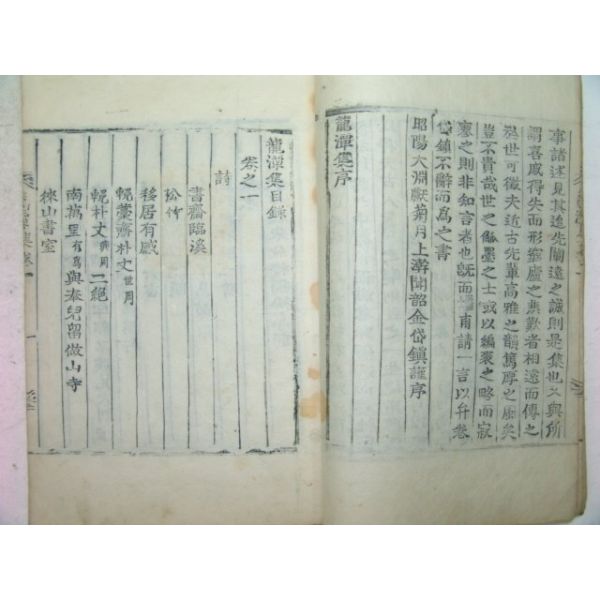 事諸述見其追先闡遠之誠則是集也又與所
謂喜戚得失而形窮廬之無歎者相遠而傳之
於世可徵夫近古先輩高雅之韻篤厚之風矣
豈不貴哉世之觚墨之士或以編袠之略而寂
寥之則非知言者也旣而 甫請一言以弁卷
岱鎭不辭而爲之書
昭陽大淵獻菊月上澣聞韶金岱鎭謹序
龍潭集序
龍潭集目錄
卷之一
詩
書齋臨溪
移居有感
輓藁齋朴丈世周
輓朴丈 周二絶
南萬里有爲與泰兒留做山寺
山書室